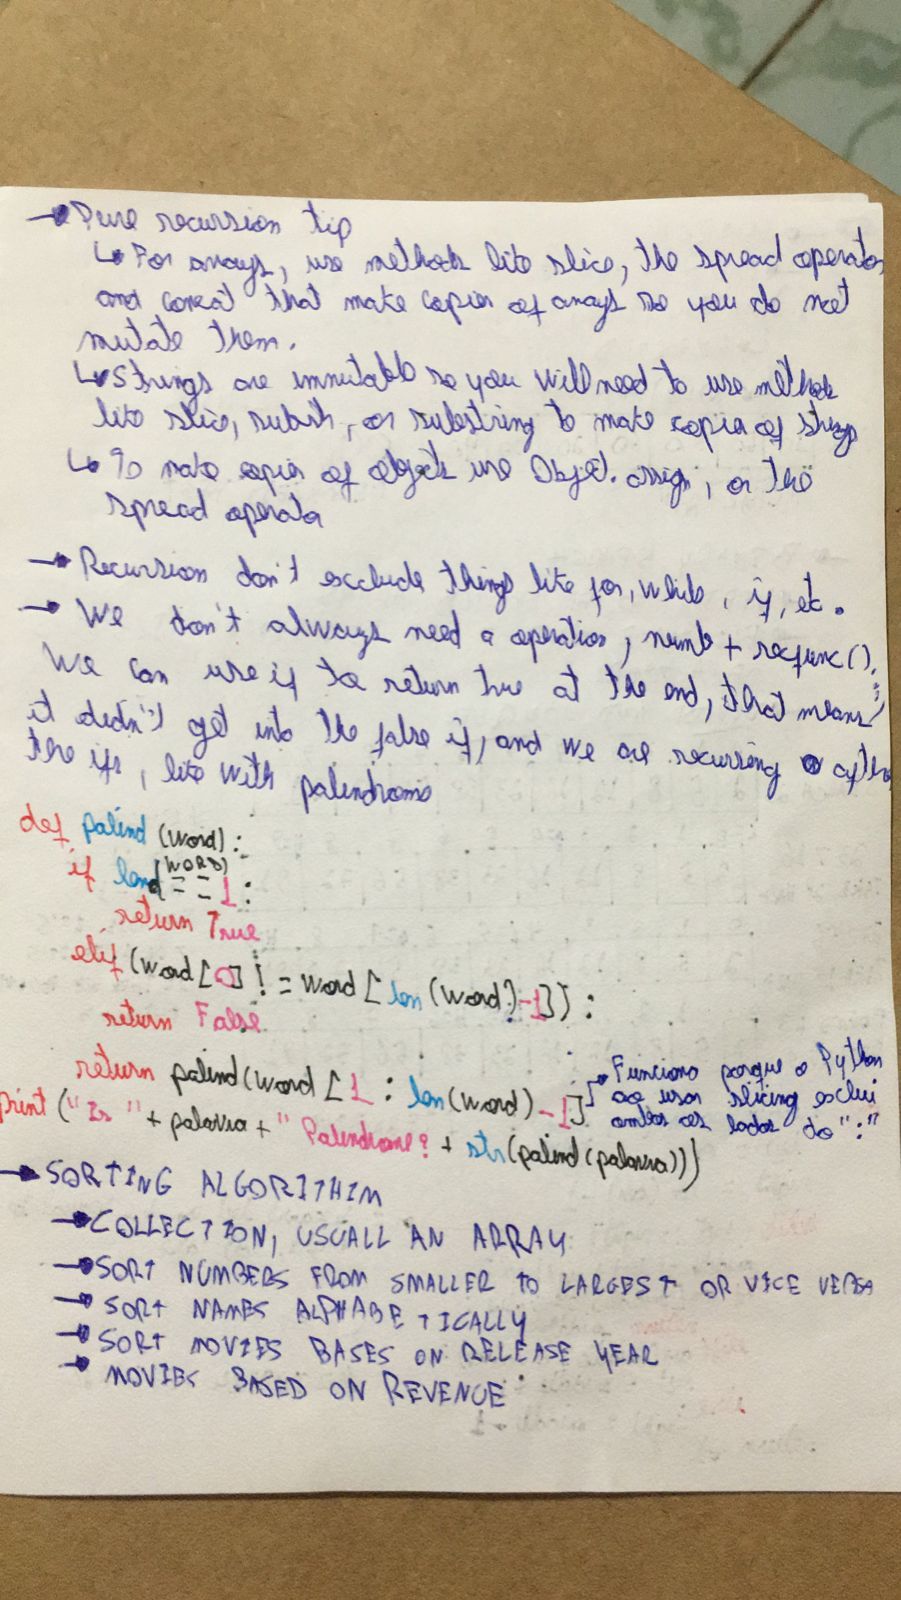 → Pure recursion tip
↳ For arrays, use methods like slice, the spread operator
and concat that make copies of arrays so you do not
mutate them.
↳ Strings are immutable so you will need to use methods
like slice, substr, or substring to make copies of strings
↳ To make copies of objects use Object.assign, or the
spread operator
→ Recursion don't exclude things like for, while, if, etc.
→ We don't always need a operation, numb + recfunc().
We can use if to return true at the end, that means
it didn't get into the false if, and we are recurring after
the ifs, like with palindroms
def palind (word):
if len(WORD) == 1:
return True
elif (word[0] != word[len(word)-1]):
return False
return palind(word[1 : len(word)-1]
→ Funciona porque o Python
ao usar slicing exclui
ambos os lados do ":"
print ("Is " + palavra + " Palindrome? + str(palind(palavra)))
→ SORTING ALGORITHIM
→ COLLECTION, USUALL AN ARRAY
→ SORT NUMBERS FROM SMALLER TO LARGEST OR VICE VERSA
→ SORT NAMES ALPHABETICALLY
→ SORT MOVIES BASES ON RELEASE YEAR
→ MOVIES BASED ON REVENUE